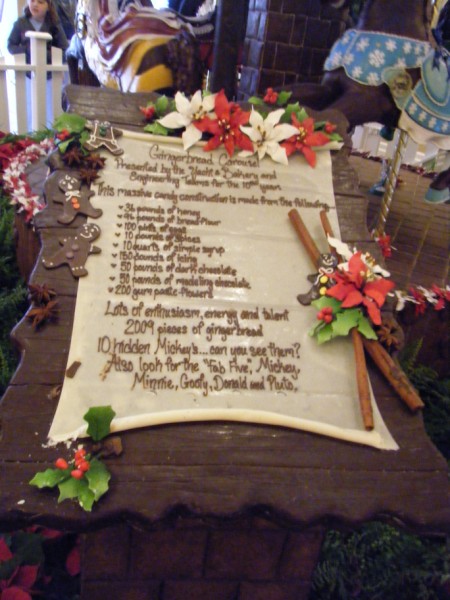 Gingerbread Carousel
Presented by the Yacht & Bakery and
Engineering Talents for the 10th year.
This massive candy construction is made from the following:
• 36 pounds of honey
• 96 pounds of bread flour
• 100 pints of
• 10 pounds of spices
• 10 quarts of simple syrup
• 150 pounds of icing
• 50 pounds of dark chocolate
• 50 pounds of modeling chocolate
• 200 gum paste flowers
Lots of enthusiasm, energy and talent
2009 pieces of gingerbread
10 hidden Mickey's... can you see them?
Also look for the "Fab Five," Mickey,
Minnie, Goofy, Donald and Pluto.